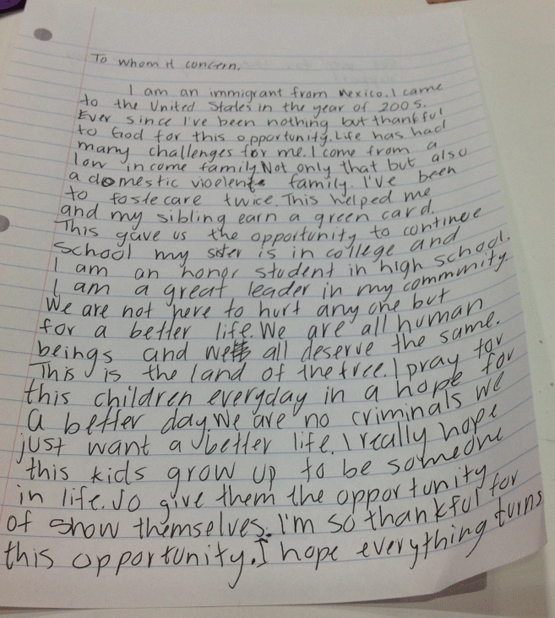 To whom it concern.
I am an immigrant from Mexico. I came
to the United States in the year of 2005.
Ever since I've been nothing but thankful
to God for this opportunity. Life has had
many challenges for me. I come from a
low income family. Not only that but also
a domestic violente family. I've been
to fostecare twice. This helped me
and my sibling earn a green card.
This gave us the opportunity to continue
school my sister is in college and
I am an honor student in high school.
I am a great leader in my community.
We are not here to hurt any one but
for a better life. We are all human
beings and we all deserve the same.
This is the land of the free. I pray for
this children everyday in a hope for
a better day. We are no criminals we
just want a better life. I really hope
this kids grow up to be someone
in life. So give them the opportunity
of show themselves. I'm so thankful for
this opportunity. I hope everything turns